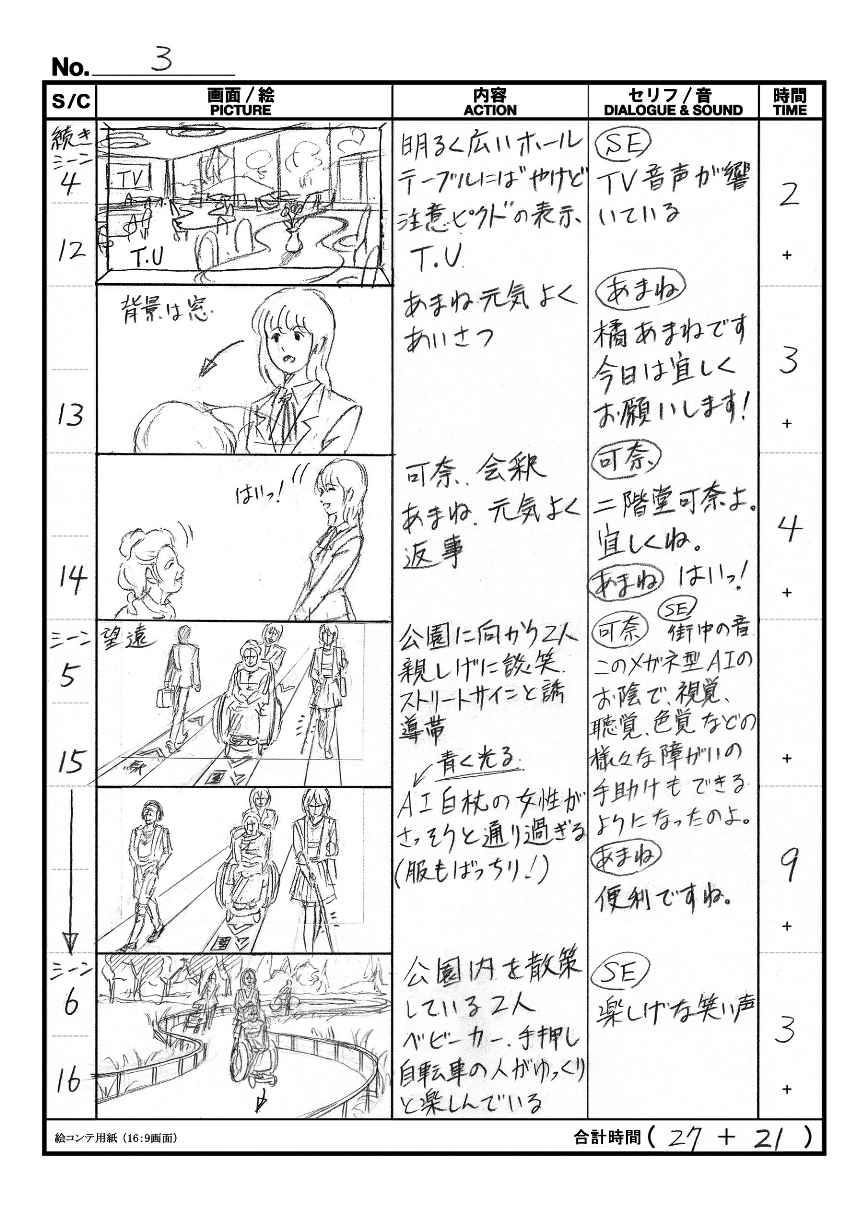 No. 3
S/C
画面/絵
PICTURE
内容
ACTION
セリフ/音
DIALOGUE & SOUND
時間
TIME
続き
シーン
4
12
TV
T.U
明るく広いホール
テーブルには"やけど
注意ピクト"の表示、
T.U.
SE
TV音声が響
いている
2
+
13
背景は窓
あまね元気よく
あいさつ
あまね
橘あまねです
今日は宜しく
お願いします!
3
+
14
はいっ!
可奈、会釈
あまね、元気よく
返事
可奈
二階堂可奈よ。
宜しくね。
あまね はいっ!
4
+
シーン
5
15
望遠
公園に向かう2人
親しげに談笑、
ストリートサインと誘
導帯
青く光る
AI白杖の女性が
さっそうと通り過ぎる
(服もばっちり!)
可奈 SE 街中の音
このメガネ型AIの
お陰で、視覚、
聴覚、色覚などの
様々な障がいの
手助けもできる
ようになったのよ。
あまね
便利ですね。
+
9
+
シーン
6
16
公園内を散策
している2人
ベビーカー、手押し
自転車の人がゆっくり
と楽しんでいる
SE
楽しげな笑い声
3
+
絵コンテ用紙(16:9画面)
合計時間(27 + 21)